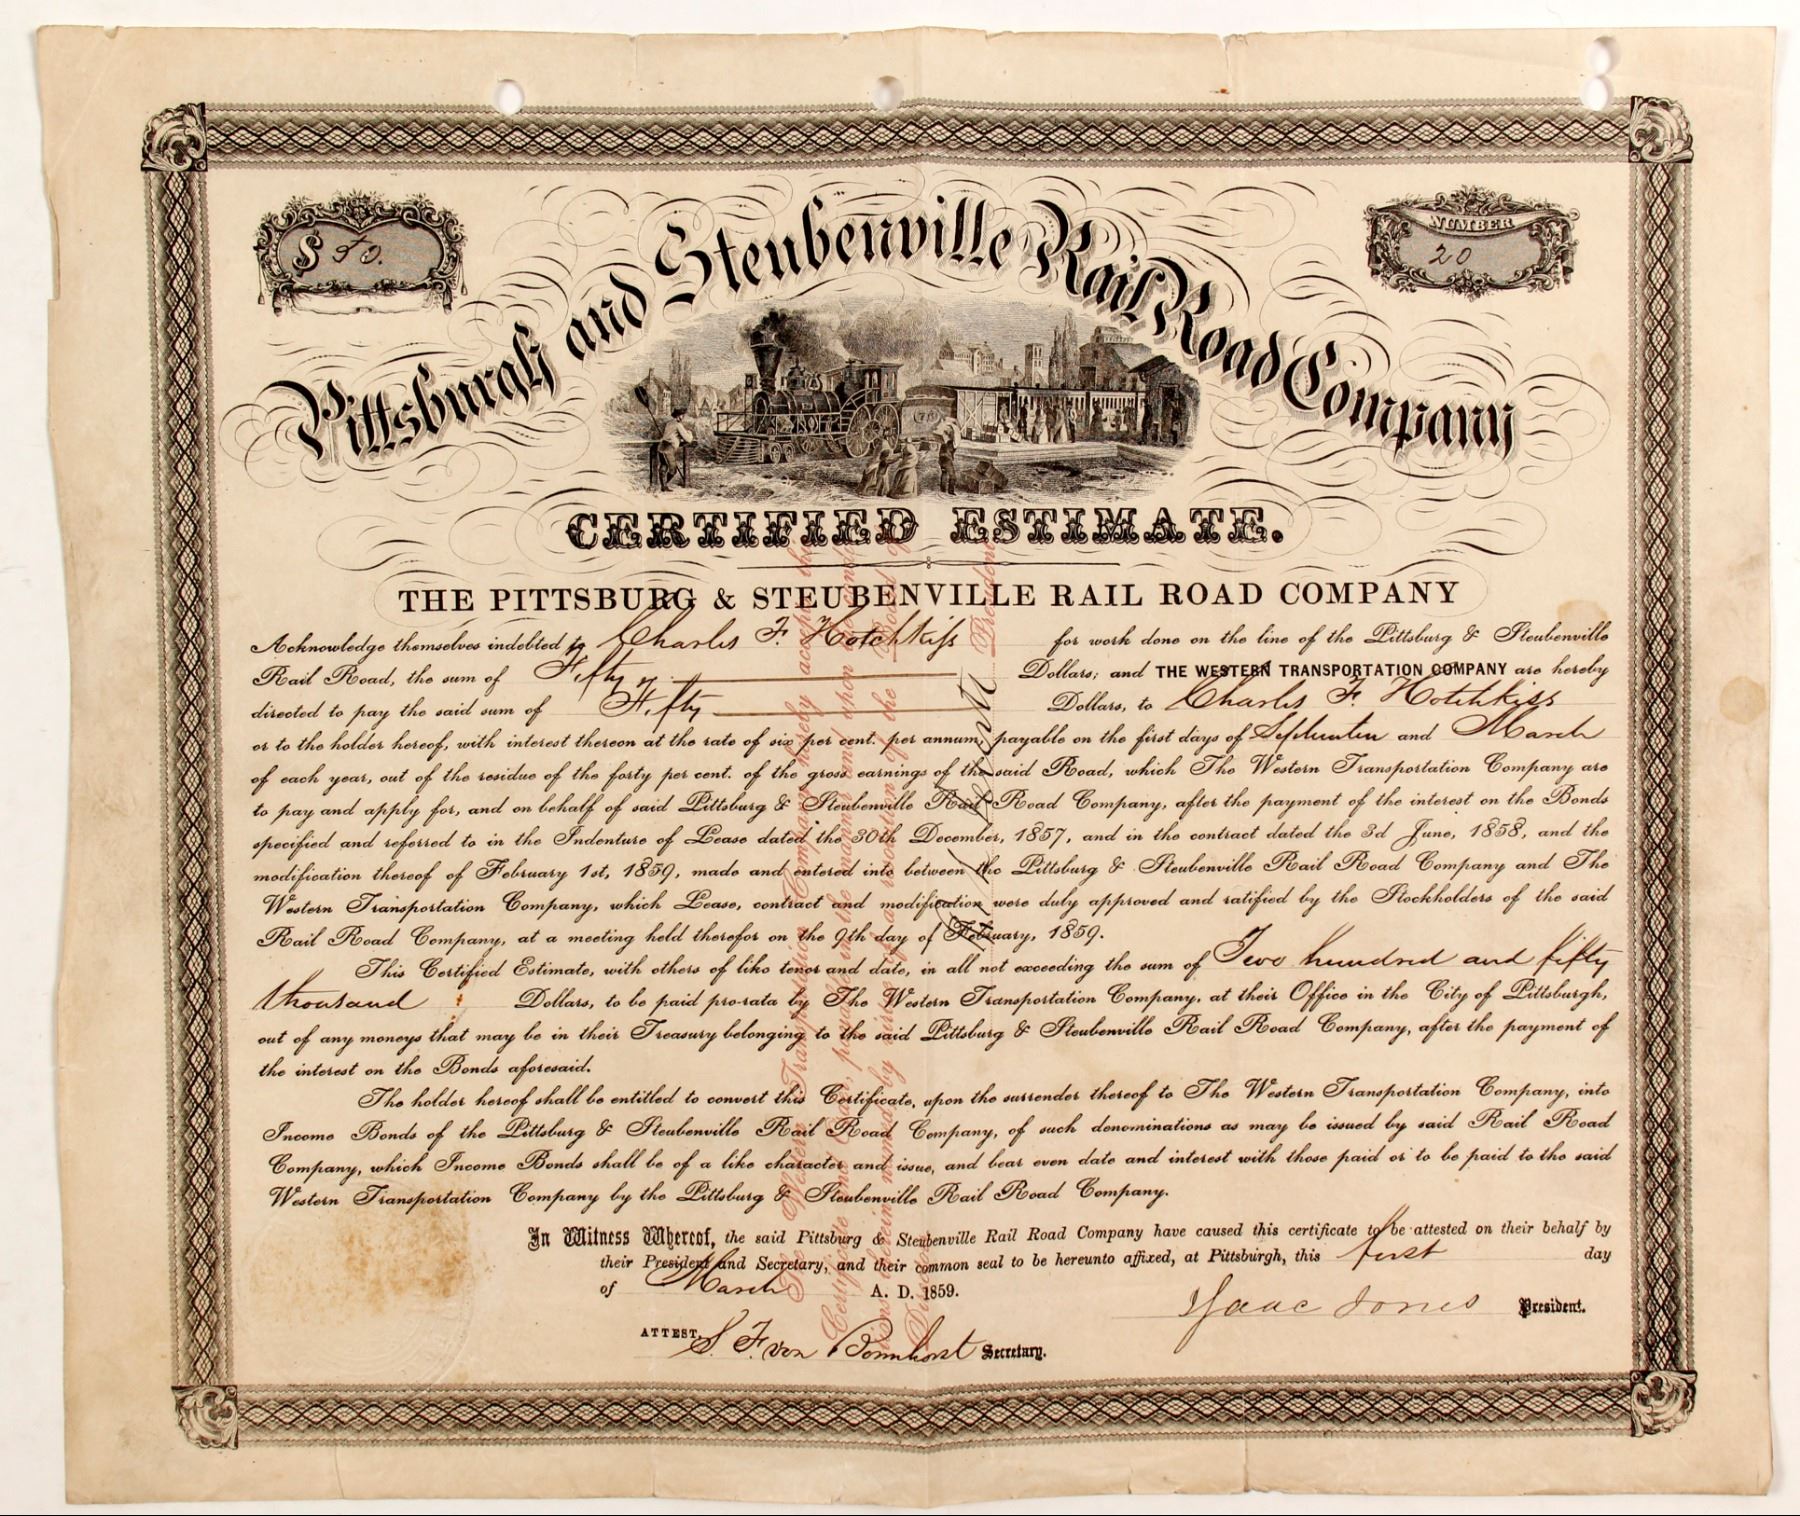 $ 50.
NUMBER
20
Pittsburgh and Steubenville Rail Road Company
(76)
CERTIFIED ESTIMATE.
THE PITTSBURG & STEUBENVILLE RAIL ROAD COMPANY
Acknowledge themselves indebted to Charles F. Hotchkiss for work done on the line of the Pittsburg & Steubenville
Rail Road, the sum of Fifty Dollars; and THE WESTERN TRANSPORTATION COMPANY are hereby
directed to pay the said sum of Fifty Dollars, to Charles F. Hotchkiss
or to the holder hereof, with interest thereon at the rate of six per cent. per annum, payable on the first days of September and March
of each year, out of the residue of the forty per cent. of the gross earnings of the said Road, which The Western Transportation Company are
to pay and apply for, and on behalf of said Pittsburg & Steubenville Rail Road Company, after the payment of the interest on the Bonds
specified and referred to in the Indenture of Lease dated the 30th December, 1857, and in the contract dated the 3d June, 1858, and the
modification thereof of February 1st, 1859, made and entered into between the Pittsburg & Steubenville Rail Road Company and The
Western Transportation Company, which Lease, contract and modification were duly approved and ratified by the Stockholders of the said
Rail Road Company, at a meeting held therefor on the 9th day of February, 1859.
This Certified Estimate, with others of like tenor and date, in all not exceeding the sum of Two hundred and fifty
thousand Dollars, to be paid pro-rata by The Western Transportation Company, at their Office in the City of Pittsburgh,
out of any moneys that may be in their Treasury belonging to the said Pittsburg & Steubenville Rail Road Company, after the payment of
the interest on the Bonds aforesaid.
The holder hereof shall be entitled to convert this Certificate, upon the surrender thereof to The Western Transportation Company, into
Income Bonds of the Pittsburg & Steubenville Rail Road Company, of such denominations as may be issued by said Rail Road
Company, which Income Bonds shall be of a like character and issue, and bear even date and interest with those paid or to be paid to the said
Western Transportation Company by the Pittsburg & Steubenville Rail Road Company.
In Witness Whereof, the said Pittsburg & Steubenville Rail Road Company have caused this certificate to be attested on their behalf by
their President and Secretary, and their common seal to be hereunto affixed, at Pittsburgh, this first day
of March A. D. 1859.
Isaac Jones President.
ATTEST, S. F. von Bonnhorst Secretary.
The Western Transportation Company hereby accept the
President